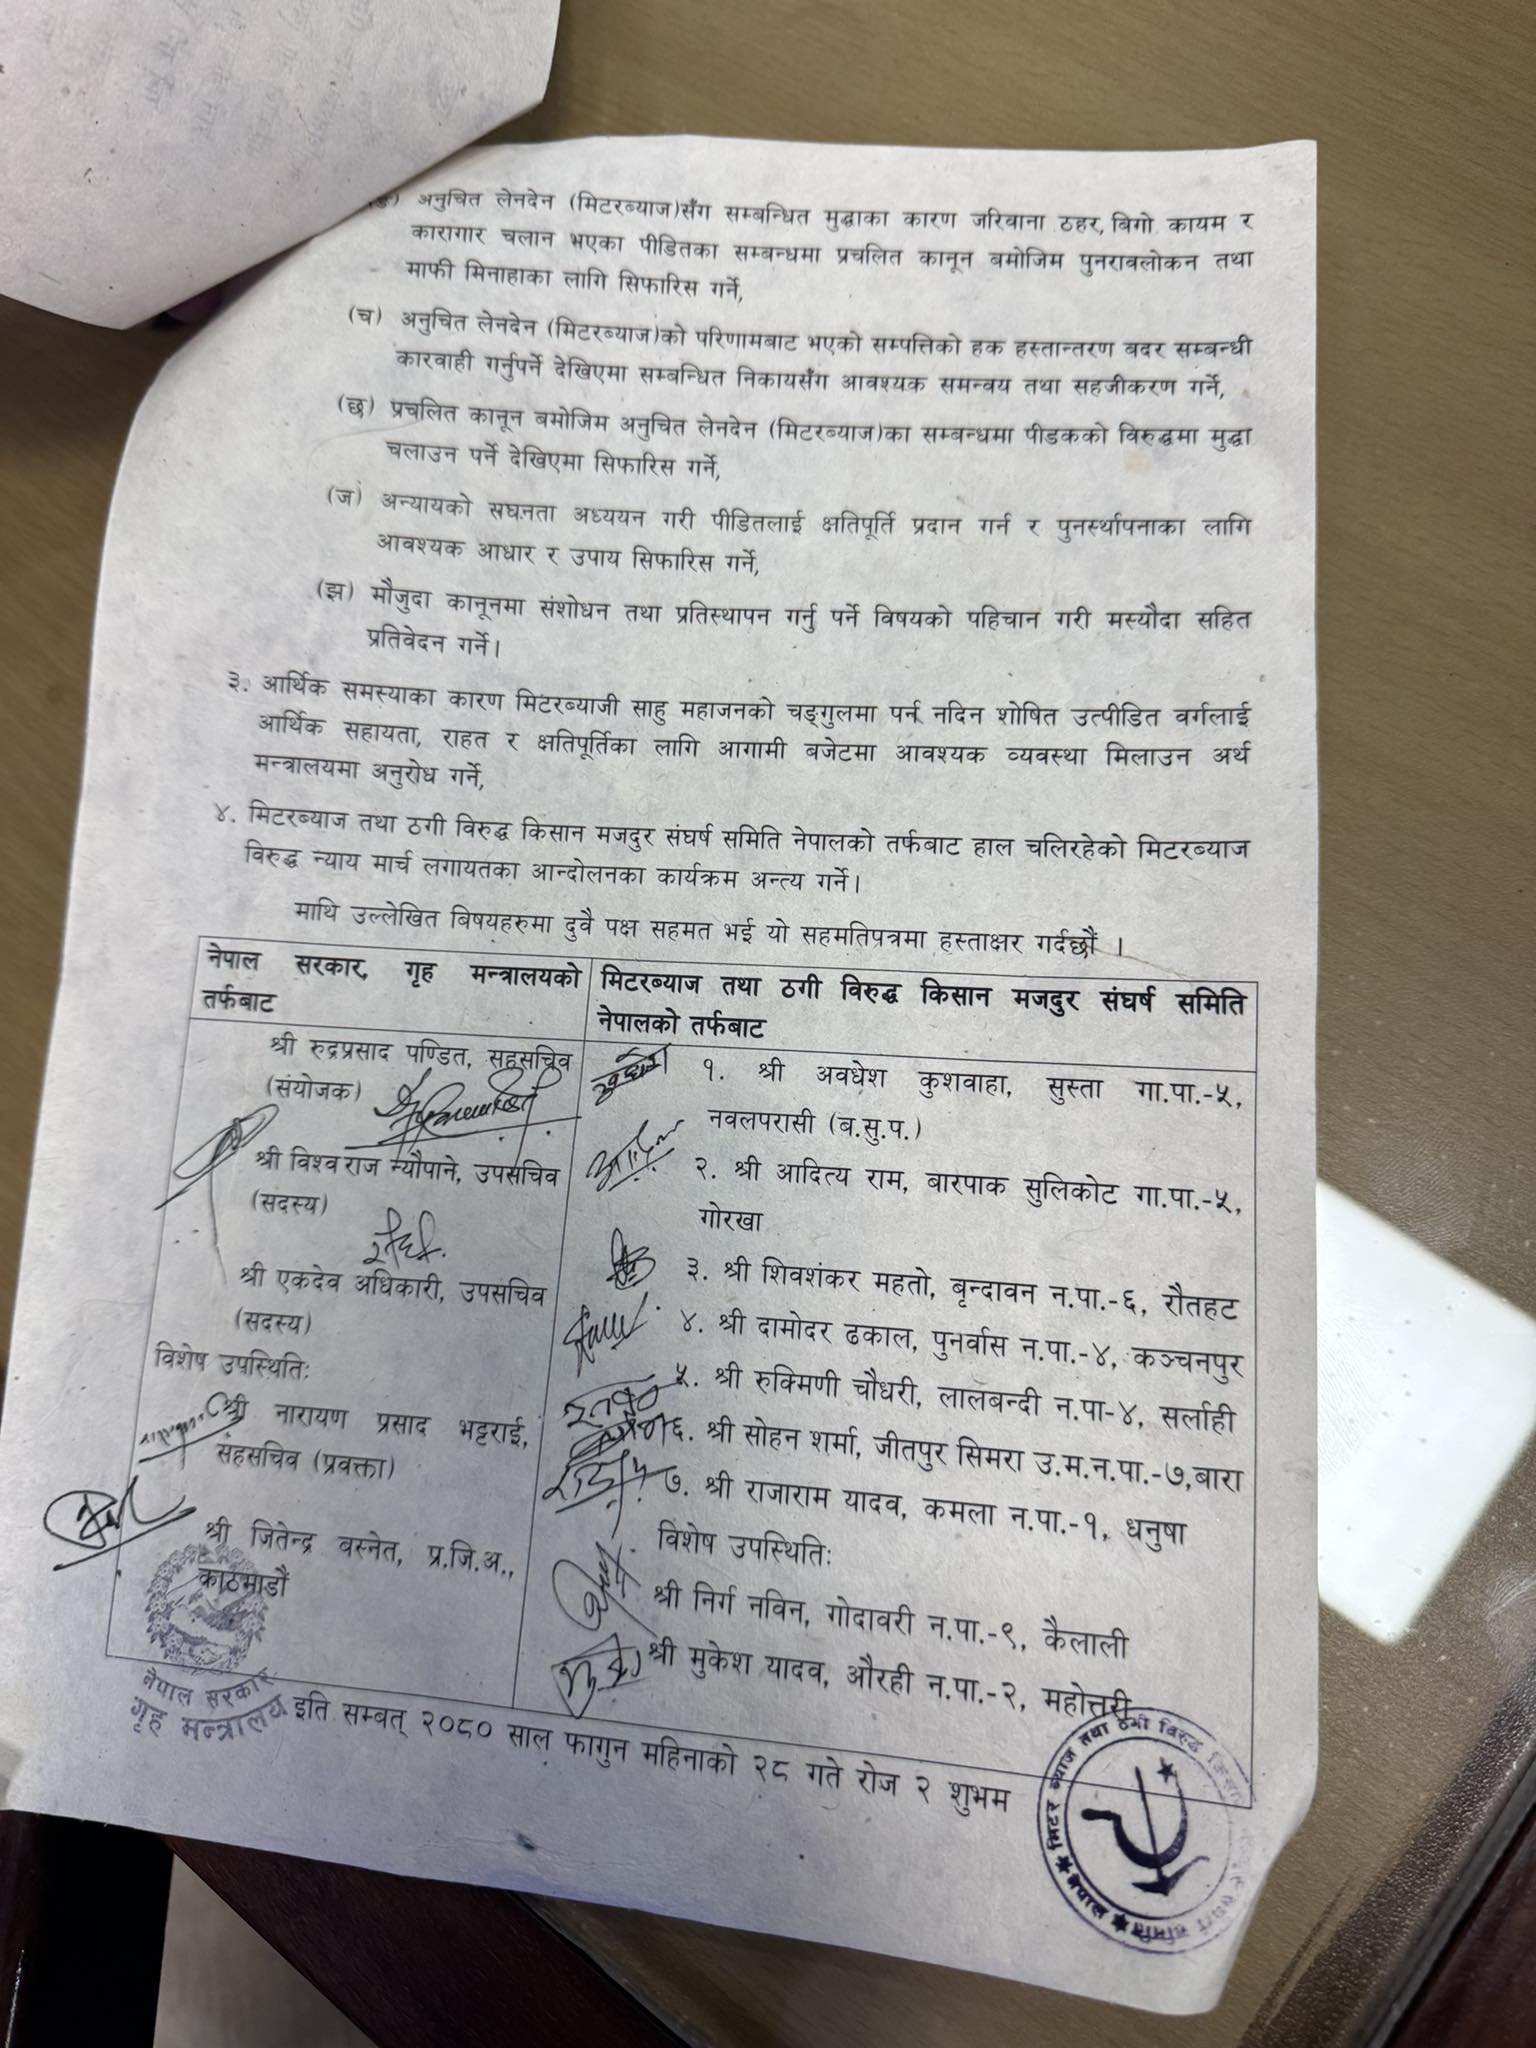 (ङ) अनुचित लेनदेन (मिटरब्याज)सँग सम्बन्धित मुद्धाका कारण जरिवाना ठहर, बिगो कायम र
कारागार चलान भएका पीडितका सम्बन्धमा प्रचलित कानून बमोजिम पुनरावलोकन तथा
माफी मिनाहाका लागि सिफारिस गर्ने,
(च) अनुचित लेनदेन (मिटरब्याज)को परिणामबाट भएको सम्पत्तिको हक हस्तान्तरण बदर सम्बन्धी
कारवाही गर्नुपर्ने देखिएमा सम्बन्धित निकायसँग आवश्यक समन्वय तथा सहजीकरण गर्ने,
(छ) प्रचलित कानून बमोजिम अनुचित लेनदेन (मिटरब्याज)का सम्बन्धमा पीडकको विरुद्धमा मुद्धा
चलाउन पर्ने देखिएमा सिफारिस गर्ने,
(ज) अन्यायको सघनता अध्ययन गरी पीडितलाई क्षतिपूर्ति प्रदान गर्न र पुनर्स्थापनाका लागि
आवश्यक आधार र उपाय सिफारिस गर्ने,
(झ) मौजुदा कानूनमा संशोधन तथा प्रतिस्थापन गर्नु पर्ने विषयको पहिचान गरी मस्यौदा सहित
प्रतिवेदन गर्ने।
३. आर्थिक समस्याका कारण मिटरब्याजी साहु महाजनको चङ्गुलमा पर्न नदिन शोषित उत्पीडित वर्गलाई
आर्थिक सहायता, राहत र क्षतिपूर्तिका लागि आगामी बजेटमा आवश्यक व्यवस्था मिलाउन अर्थ
मन्त्रालयमा अनुरोध गर्ने,
४. मिटरब्याज तथा ठगी विरुद्ध किसान मजदुर संघर्ष समिति नेपालको तर्फबाट हाल चलिरहेको मिटरब्याज
विरुद्ध न्याय मार्च लगायतका आन्दोलनका कार्यक्रम अन्त्य गर्ने।
माथि उल्लेखित बिषयहरुमा दुवै पक्ष सहमत भई यो सहमतिपत्रमा हस्ताक्षर गर्दछौं ।
नेपाल सरकार, गृह मन्त्रालयको
तर्फबाट
श्री रुद्रप्रसाद पण्डित, सहसचिव
(संयोजक)
श्री विश्व राज न्यौपाने, उपसचिव
(सदस्य)
श्री एकदेव अधिकारी, उपसचिव
(सदस्य)
विशेष उपस्थितिः
श्री नारायण प्रसाद भट्टराई,
सहसचिव (प्रवक्ता)
श्री जितेन्द्र बस्नेत, प्र.जि.अ.,
काठमाडौं
नेपाल सरकार
गृह मन्त्रालय
मिटरब्याज तथा ठगी विरुद्ध किसान मजदुर संघर्ष समिति
नेपालको तर्फबाट
१. श्री अवधेश कुशवाहा, सुस्ता गा.पा.-५,
नवलपरासी (ब.सु.प.)
२. श्री आदित्य राम, बारपाक सुलिकोट गा.पा.-५,
गोरखा
३. श्री शिवशंकर महतो, बृन्दावन न.पा.-६, रौतहट
४. श्री दामोदर ढकाल, पुनर्वास न.पा.-४, कञ्चनपुर
५. श्री रुक्मिणी चौधरी, लालबन्दी न.पा-४, सर्लाही
६. श्री सोहन शर्मा, जीतपुर सिमरा उ.म.न.पा.-७,बारा
७. श्री राजाराम यादव, कमला न.पा.-१, धनुषा
विशेष उपस्थितिः
श्री निर्ग नविन, गोदावरी न.पा.-९, कैलाली
श्री मुकेश यादव, औरही न.पा.-२, महोत्तरी
इति सम्बत् २०८० साल फागुन महिनाको २८ गते रोज २ शुभम
मिटर ब्याज तथा ठगी विरुद्ध
समिति
नेपाल